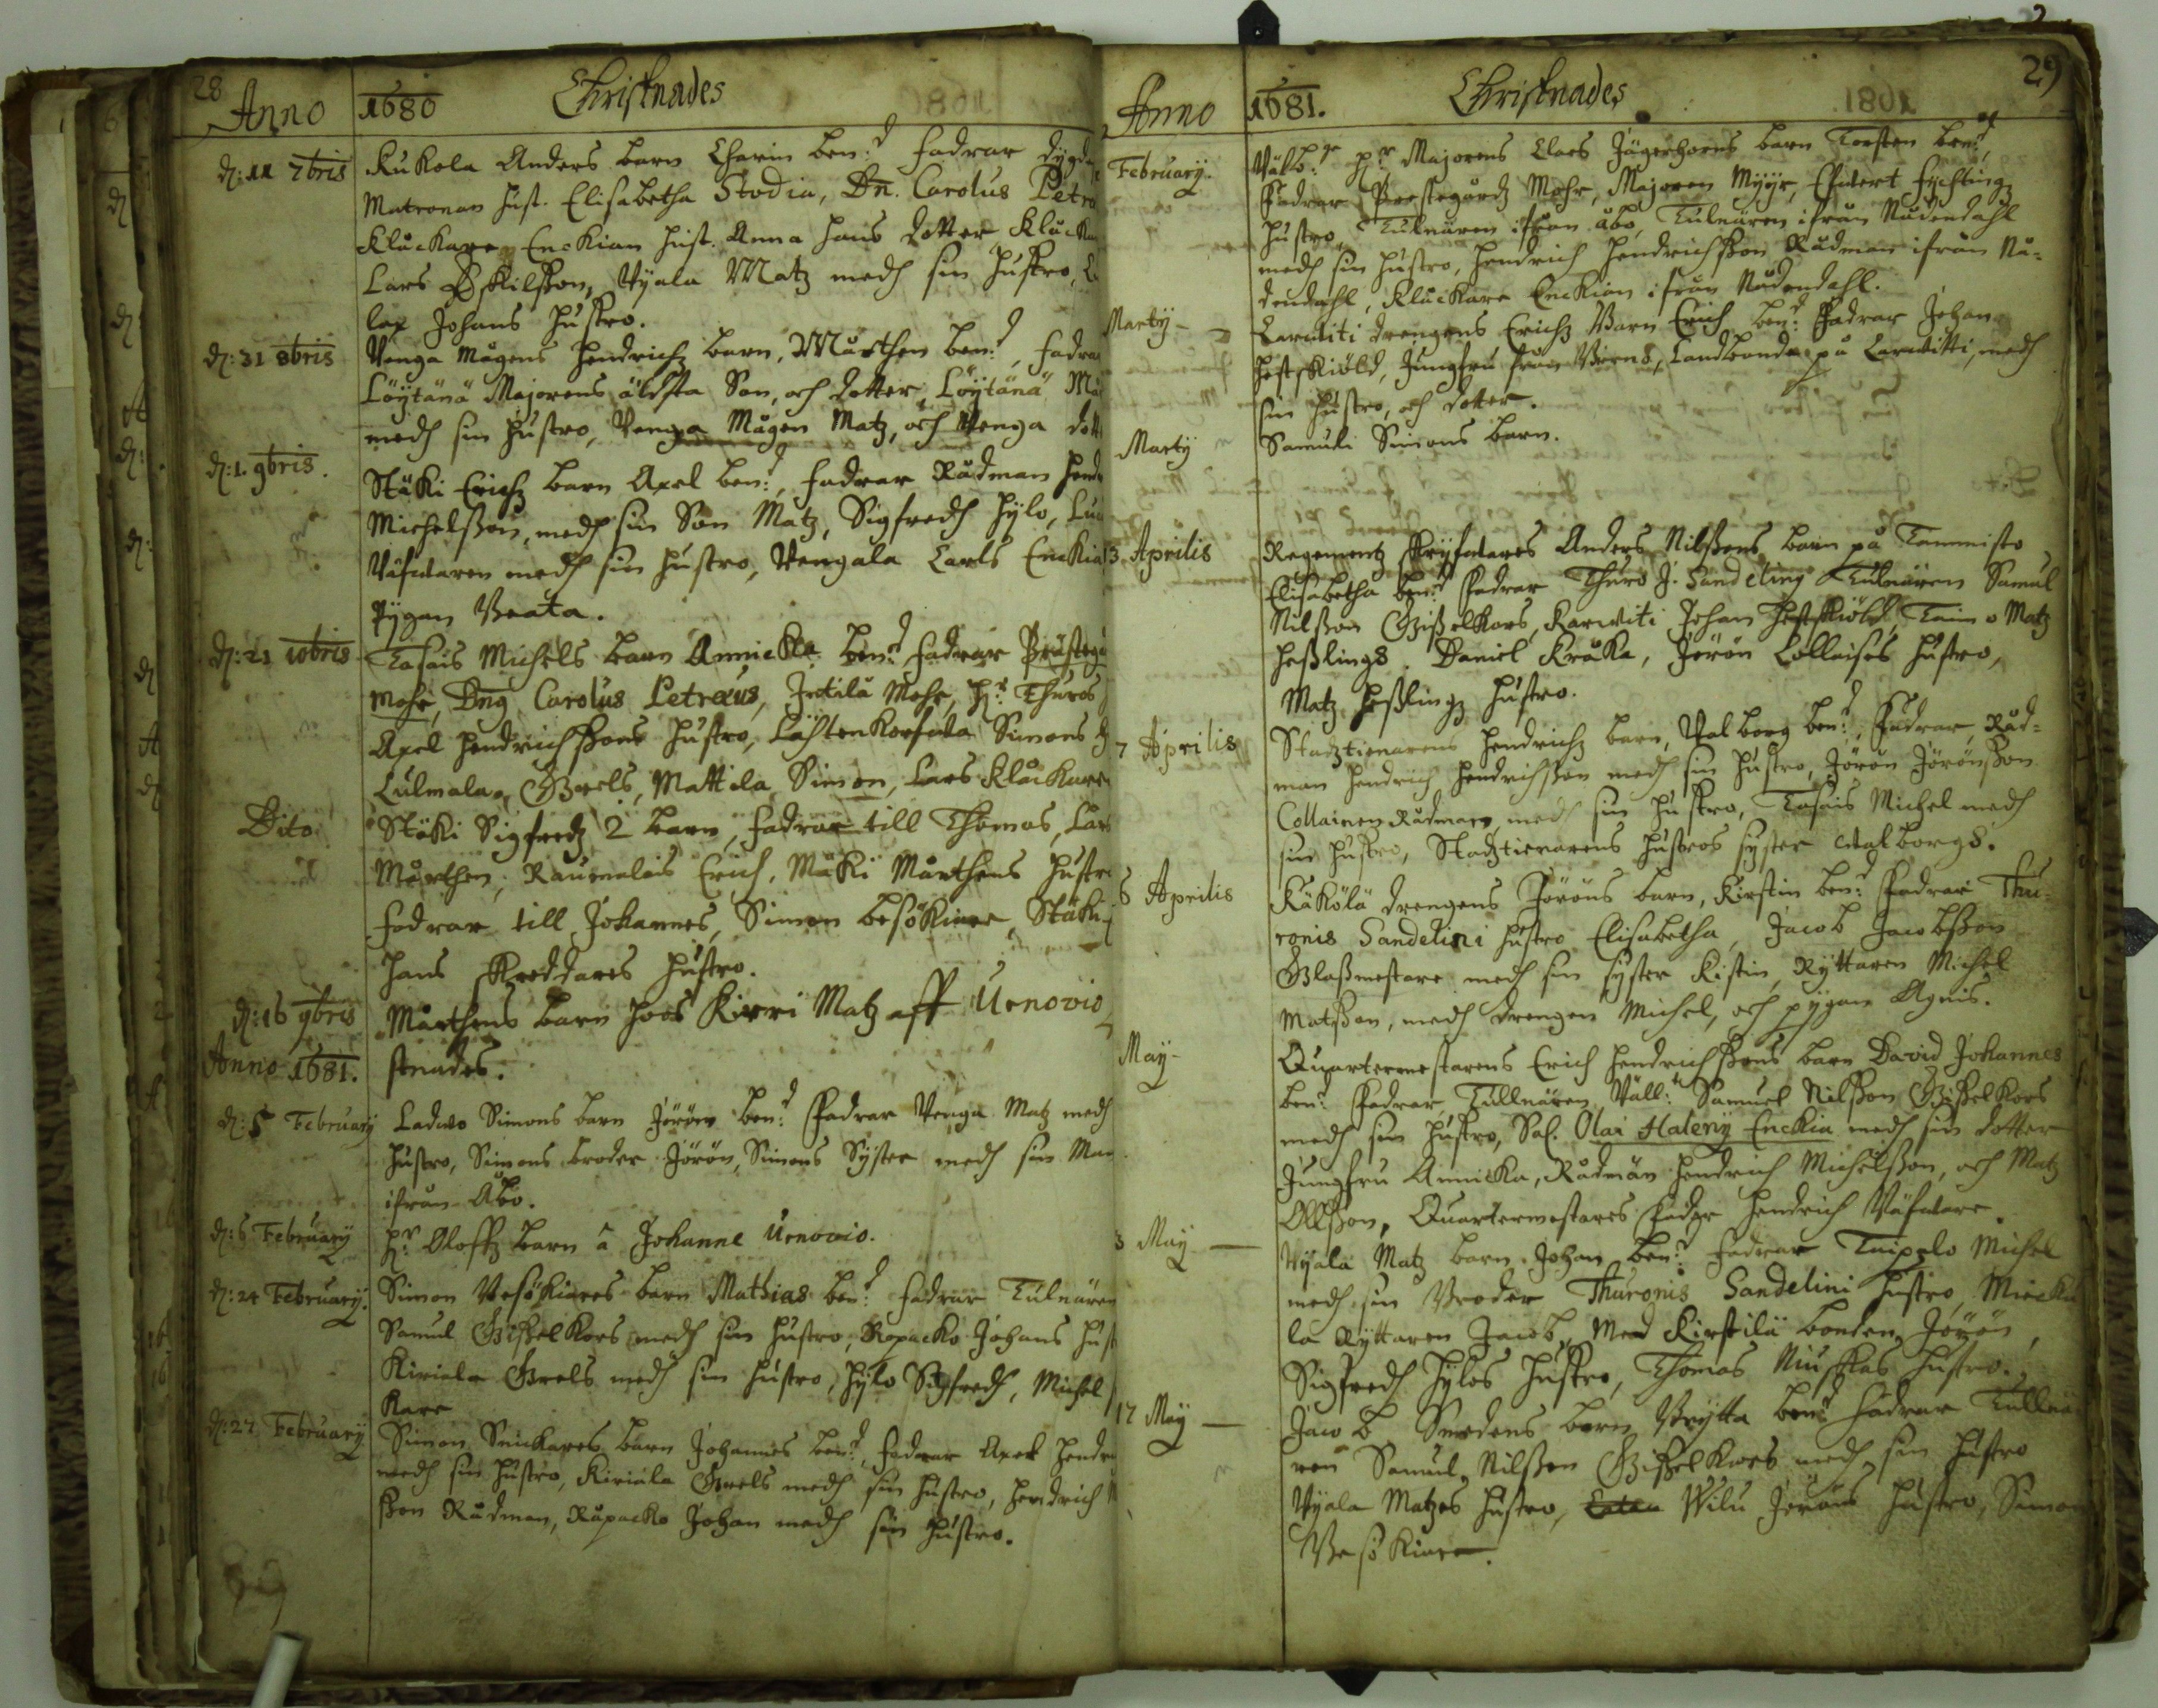 28
Anno 1680 Christnades
d: 11 7bris Kukola Anders barn Charin ben:d fadrar dygde
Matronan hust. Elisabetha Stodia, Dn. Carolus Petræ
Kluckare Enckian hust. Anna hans dotter Klucka
Lars Eskilsson, Vyala Matz medh sin hustro,
lax Johans hustro.
d: 31 8bris Venga Mågens Hendrichz barn, Mårthen ben:d, fadra
Löytänä Majorens äldsta Son, och dotter, Löytänä
medh sin hustro, Venga Mågen Matz, och Venga dott
d: 1. 9bris. Stäki Erichz barn Axel ben:d, fadrar Rådman Hend
Michelsson, medh sin Son Matz, Sigfredh Hylo,
Väfvaren medh sin hustro, Vengala Carls Enckia
Pygan Beata.
d: 21 10bris Tasais Michels barn Annicka ben:d fadrar Prästeg
Mohr, Dng Carolus Petræus, Jntilä Mohr, Hr. Thuros
Axel Hendrichssons hustro, Simons
Culmala, Grels, Mattila Simon, Lars Kluckare
Dito Stäki Sigfredz 2 barn, fadrar till Thomas, Lars
Mårthen, Raumalais Erich, Mäki Mårthens hustro
fadrar till Johannes, Simon besökiare, Stäki
Hans Skreddares hustro.
d: 16 9bris Mårthens barn hoos Kirri Matz aff Urnovio
stnades.
Anno 1681.
d: 5 February Ladvo Simons barn Jöröen ben:d Fadrar Venga Matz medh
hustro, Simons broder Jörön, Simons Syster medh sin Man
ifrån Åbo.
d: 6 February Hr. Oloffz barn à Johanne Urnovio.
d: 24 February. Simon besökiares barn Mathias ben:d fadrar Tulnären
Samul Gisselkors medh sin hustro, Ropacko Johans hust
Kiriala Grels medh sin hustro, Hylo Sigfredh, Michel
Kare
d: 27 February. Simon Snickares barn Johannes ben:d, fadrar Axel Hendri
medh sin hustro, Kiriala Grels medh sin hustro, Hendrich
sson Rådman, Rapacko Johan medh sin hustro.
29
Anno 1681. Christnades
February. Välb: Hr Majorens Claes Jägerhorns barn Torsten ben:d,
Fadrar Prestegårdz Mohr, Majoren Myyr, Evert Fychtingz
hustro, Tulnären ifrån Åbo, Tulnären ifrån Nådendahl
medh sin hustro, Hendrich Hendrichsson Rådman ifrån Nå-
dendahl, Kluckare Enckian ifrån Nådendahl.
Marty - Carwiti drengens Erichz Barn Erich ben:d Fadrar Johan
Hestskiöld, Jungfru från Viens, Landbonde på Carwitti, medh
sin hustro, och dotter.
Marty Samuli Simons barn.
3 Aprilis Regementz Skryfvares Anders Nilssons barn på Tammisto
Elisabetha ben:d Fadrar Thuro J. Sandeling Tulnären Samul
Nilsson Gisselkors, Karwiti Johan Hestskiöld, Taimo Matz
Hesslings. Daniel Kråka, Jörön Collaises hustro,
Matz Hesslingz hustro.
7 Aprilis Stadztienarens Hendrichz barn, Valborg ben:d, Fadrar, Råd-
man Hendrich Hendrichsson medh sin hustro, Jörön Jörönsson
Collainen Rådman, medh sin hustro, Tasais Michel medh
sin hustro, Stadztienarens hustros syster Walborgs.
6 Aprilis Käkölä drengens Jöröns barn, Kirstin ben:d Fadrar Thu-
ronis Sandelini hustro Elisabetha, Jacob Jacobsson
Glassmestare medh sin syster Kistin, Ryttaren Michel
Matsson, medh drengen Michel, och pygan Agnis.
May - Quartermestarens Erich Hendrichssons barn David Johannes
ben:d Fadrar Tullnären Väll: Samuel Nilsson Gisselkors
medh sin hustro, Sal. Olai Haleny Enckia medh sin dotter
Jungfru Annicka, Rådman Hendrich Michelsson, och Matz
Ollsson, Quartermestares fader Hendrich Väfvare.
3 May - Vyala Matz barn Johan ben:d fadrar Taipalo Michel
medh sin broder Thuronis Sandelini hustro, Miecku
la Ryttaren Jacob, Med Kirstilä bonden Jörön,
Sigfredh Hylos hustro, Thomas Niuskas hustro.
17 May - Jacob Smedens barn Brytta ben:d fadrar Tullnä
ren Samul Nilsson Gisselkors medh sin hustro
Vyala Matzes hustro, Wilu Jöröns hustro, Simon
Besökiare.